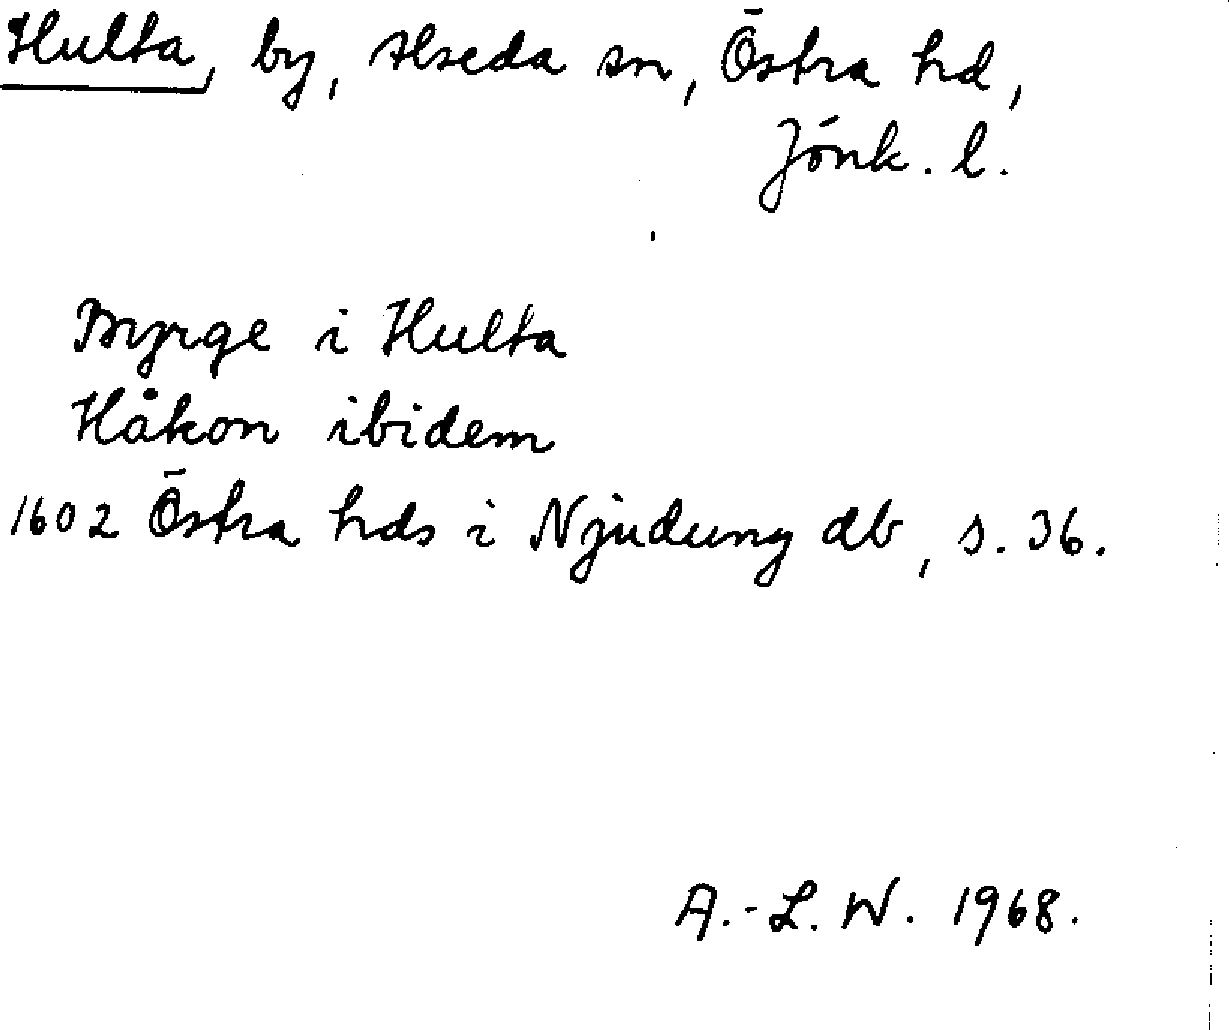 Hulta, by, Alseda sn, Östra hd,
Jönk. l.
Byrge i Hulta
Håkon ibidem
1602 Östra hds i Njudung db, s. 36.
A.-L. W. 1968.